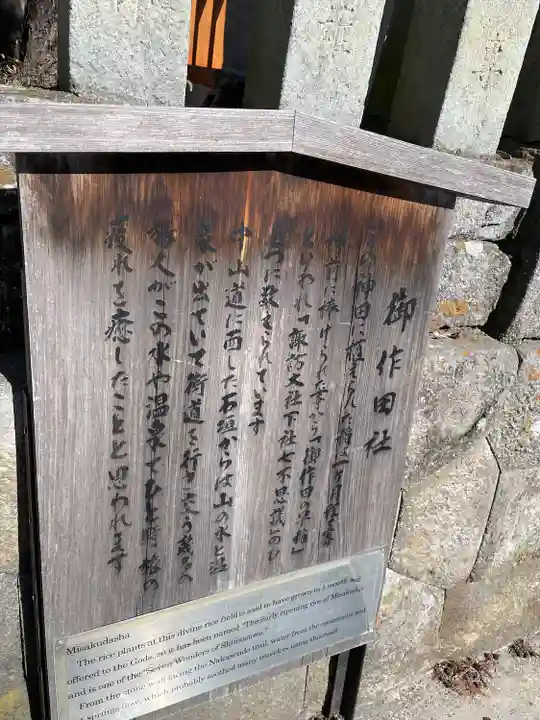 御作田社
この神田に植えられた稲は一ヶ月程で
神前に捧げられた事から「御作田の早稲」
といわれ、諏訪大社下社七不思議のひ
とつに数えられています
中山道に面した石垣からは山の水と温
泉が出ていて街道を行き交う幾多の
旅人がこの水や温泉でひと時、旅の
疲れを癒したことと思われます
Misakudasha
The rice plants at this divine rice field is said to have grown in 1 month and
offered to the Gods, so it has been named "The early ripening rice of Misakuda,"
and is one of the "Seven Wonders of Shimosuwa."
From the stone wall facing the Nakasendo trail, water from the mountains and
springs flow, which probably soothed many travelers using this road.